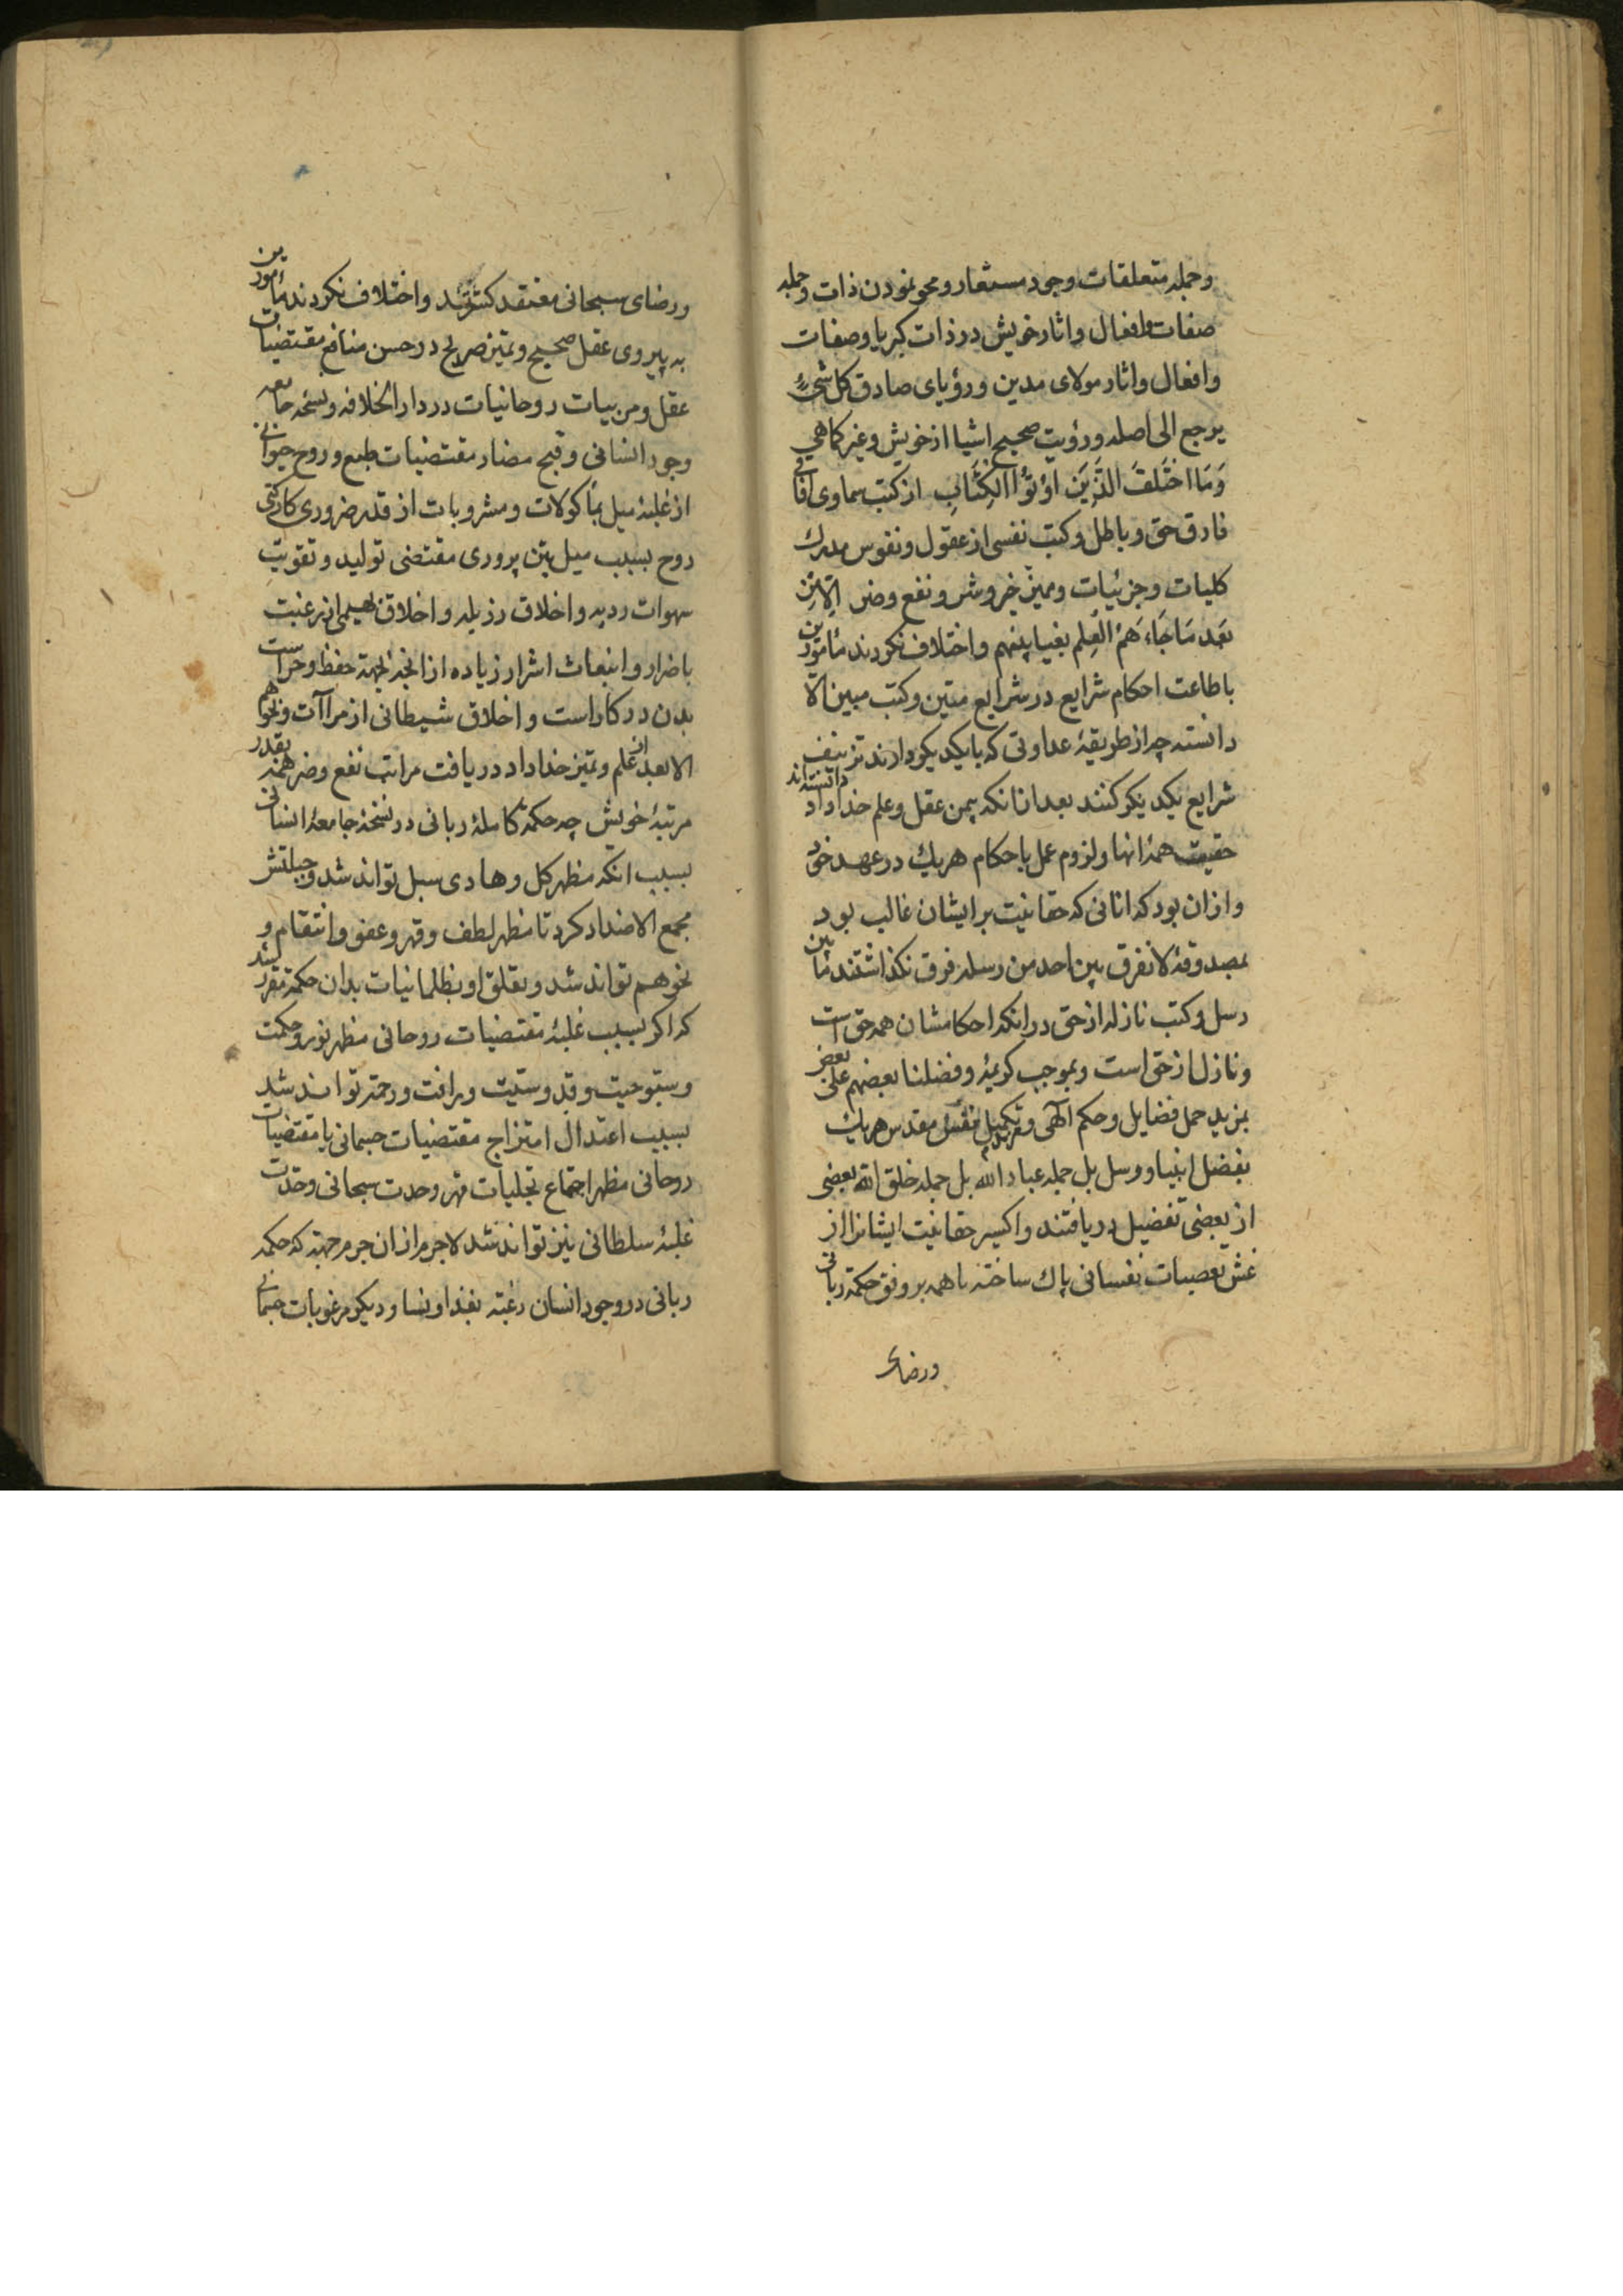 وجمله متعلقات وجود مستعار ومحو نمودن ذات وجمله
صفات وافعال واثار خویش در ذات کبریا وصفات
وافعال واثار مولای مدین ورؤیای صادق کل شیٔ
یرجع الی اصله ورؤیت صحیح اشیا از خویش وغیر کماهی
وَمَا اختَلَفَ الَّذِینَ اُوتُوا الکِتَابِ از کتب سماوی افاقی
فارق حق وباطل وکتب نفسی از عقول ونفوس مدرك
کلیات وجزئیات وممیز خیر وشر ونفع وضر اِلّا مِن
بَعدِ مَا جَاءَهُمُ العِلم بغیا بینهم واختلاف نکردند مأمورین
باطاعت احکام شرایع در شرایع متین وکتب مبین الا
دانسته چه از طریقهٔ عداوتی که بایکدیکر دارند تزییف
شرایع یکدیکر کنند بعد از انکه بیمن عقل وعلم خداداد دانسته‌اند
حقیت همهٔ انها ولزوم عمل باحکام هریك در عهد خود
وازان بود که انانی که حقانیت بر ایشان غالب بود
بمصدوقهٔ لا نفرق بین احد من رسله فرق نکذاشتند مابین
رسل وکتب نازله از حق در انکه احکامشان همه حق است
ونازل از حق است وبموجب کریمهٔ وفضلنا بعضهم علی بعض
بمزید حمل فضایل وحکم الهی وتکمیل نفس مقدس هریك
بفضل انبیا ورسل بل جمله عباد الله بل جمله خلق الله بعضی
از بعضی تفضیل دریافتند واکسیر حقانیت ایشانرا از
غش تعصبات نفسانی پاك ساخته با همه بر وفق حکمة ربانی
ورضای
ورضای سبحانی معتقد کشتند واختلاف نکردند مأمورین
به پیروی عقل صحیح وتمیز صریح در حسن منافع مقتضیات
عقل ومربیات روحانیات در دار الخلافه ونسخه جامعه
وجود انسانی وقبح مضار مقتضیات طبع وروح حیوانی
از غلبهٔ میل بمأکولات ومشروبات از قدر ضروری کارکنی
روح بسبب میل بتن پروری مقتضی تولید وتقویتِ
شهوات ردیه واخلاق رذیله واخلاق بهیمی از رغبت
باضرار وانبعاث اشرار زیاده از انچه بجهة حفظ وحراست
بدن در کار است واخلاق شیطانی از مراآت ونحوهم
الا بعد از علم وتمیز خداداد در یافت مراتب نفع وضر همه بقدر
مرتبهٔ خویش چه حکمة کاملهٔ ربانی در نسخهٔ جامعهٔ انسانی
بسبب انکه مظهر کل وهادی سبل تواند شد وجبلتش
مجمع الاضداد کرد تا مظهر لطف وقهر وعفو وانتقام و
نحوهم تواند شد وتعلق او بظلمانیات بدان حکمة مقرر شد
که اکر بسبب غلبهٔ مقتضیات روحانی مظهر نور وحکمت
وسبوحیت وقدوسیت ورافت ورحمة تواند شد
بسبب اعتدال امتزاج مقتضیات جسمانی با مقتضیات
روحانی مظهر اجتماع تجلیات قهر وحدت سبحانی وحدت
غلبهٔ سلطانی نیز تواند شد لاجرم ازان جرم جهة که حکمه
ربانی در وجود انسان رغبة بغذا ونسا ودیکر مرغوبات جسمانی